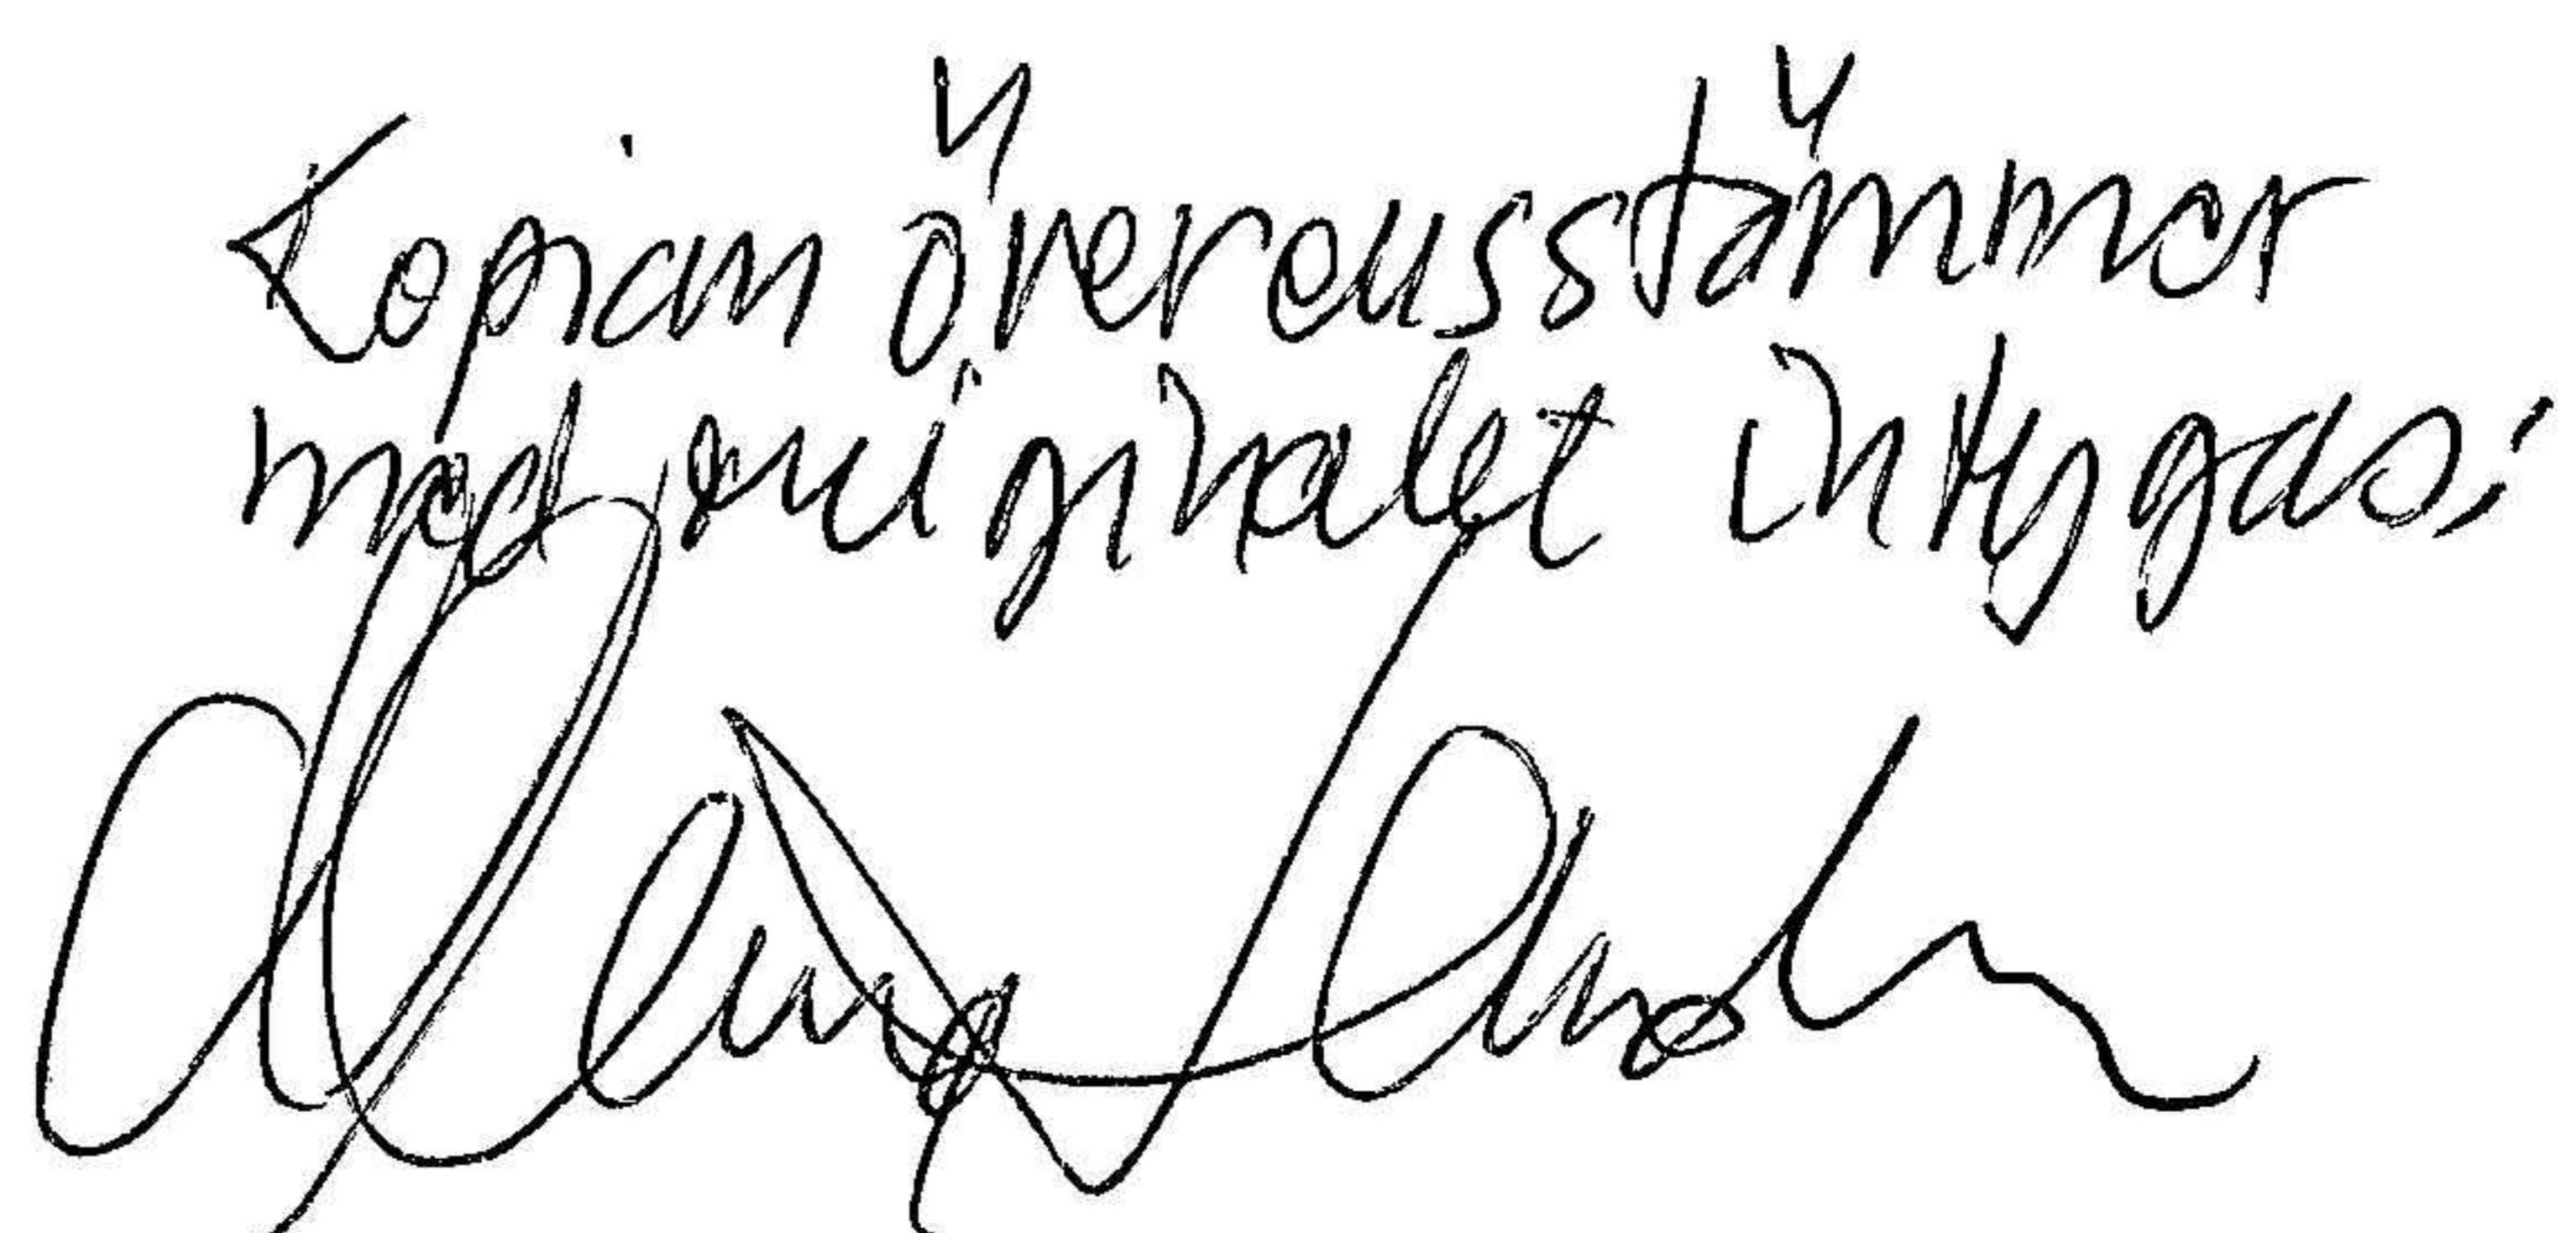 Kopian överensstämmer
med originalet intygas: